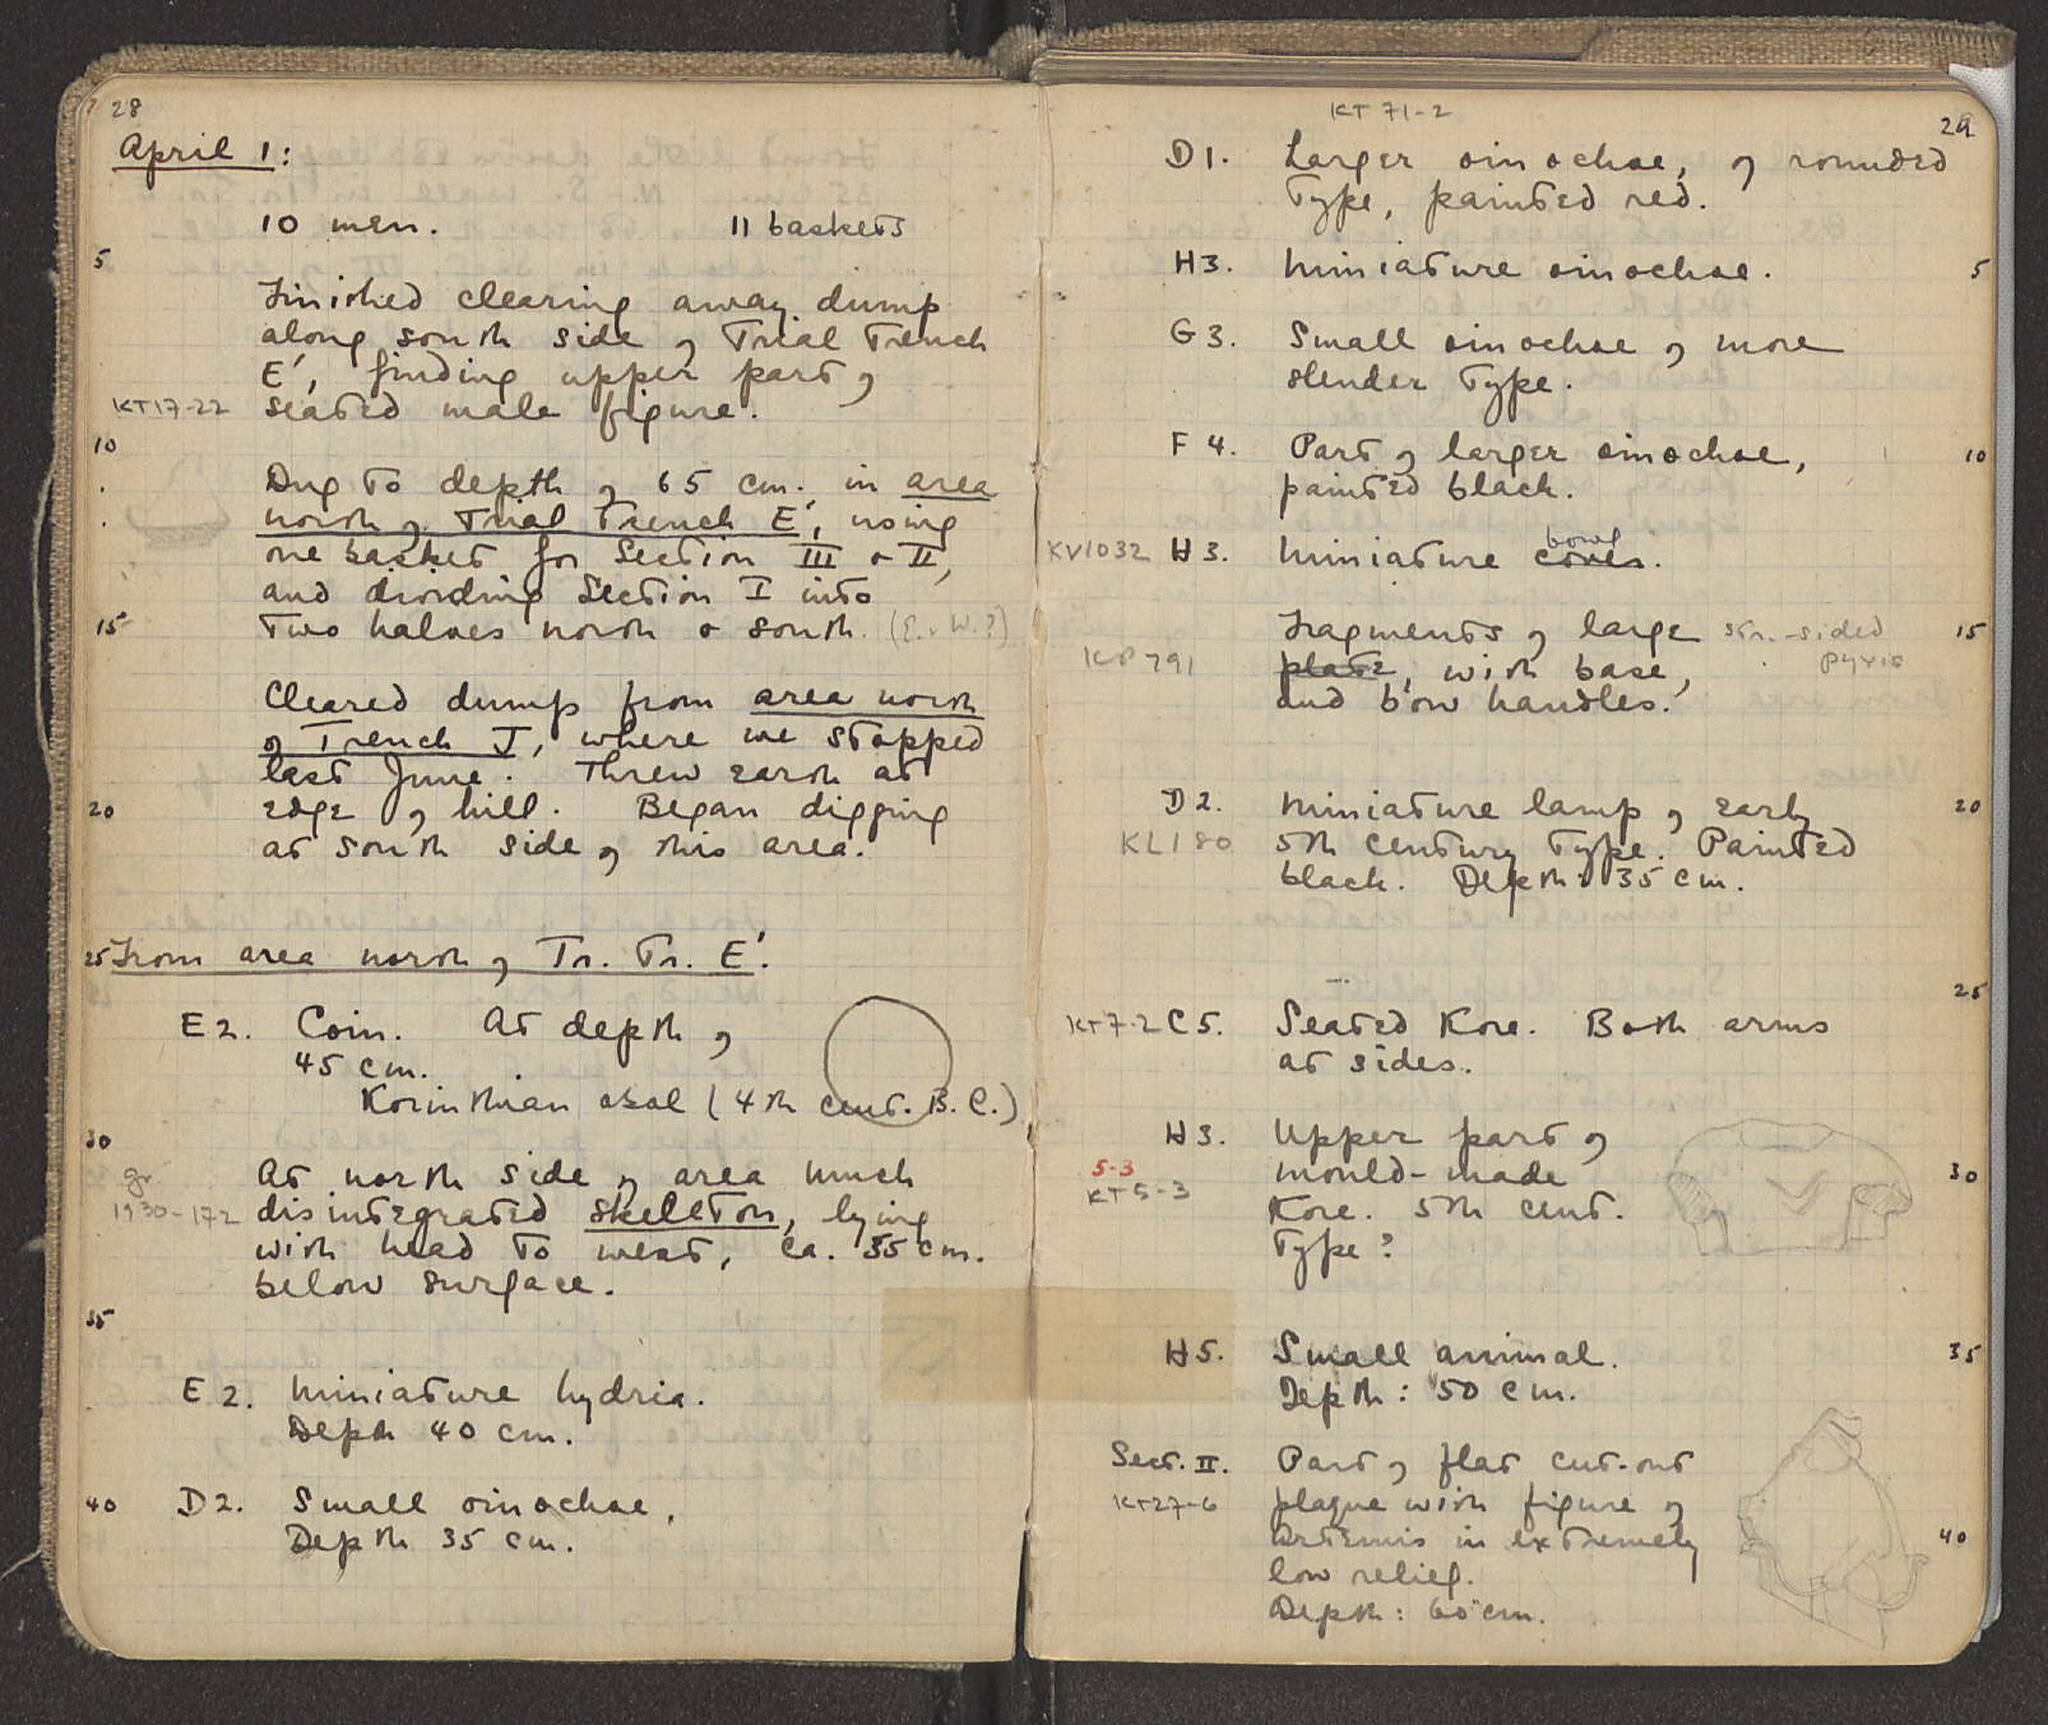 28
April 1:
10 men. 11 baskets
5
Finished clearing away dump
along south side of Trial Trench
E', finding upper part of
KT17-22 seated male figure.
10
Dug to depth of 65 cm. in area
north of Trial Trench E', using
one basket for Section III & II,
and dividing Section I into
15 two halves north & south. (E. & W.?)
Cleared dump from area north
of Trench J, where we stopped
last June. Threw earth at
20 edge of hill. Began digging
at south side of this area.
25 From area north of Tr. Tr. E'.
E2. Coin. At depth of
45 cm.
Korinthian obol (4th cent. B.C.)
30
At north side of area much
gr. 1930-172 disintegrated skeleton, lying
with head to west, ca. 35 cm.
below surface.
35
E2. Miniature hydria.
Depth 40 cm.
40 D2. Small oinochoe,
Depth 35 cm.
KT 71-2
29
D1. Larger oinochoe, of rounded
type, painted red.
H3. Miniature oinochoe. 5
G3. Small oinochoe of more
slender type.
F4. Part of larger oinochoe, 10
painted black.
bowl
KV1032 H3. Miniature cover.
Fragments of large str.-sided 15
KP791 plate, with base, pyxis
and bow handles.
D2. Miniature lamp of early 20
KL180 5th century type. Painted
black. Depth: 35 cm.
25
KT7-2 C5. Seated Kore. Both arms
at sides.
H3. Upper part of
5-3 mould-made 30
KT5-3
Kore. 5th cent.
type?
H5. Small animal. 35
Depth: 50 cm.
Sect. II. Part of flat cut-out
KT27-6 plaque with figure of
Artemis in extremely 40
low relief.
Depth: 60 cm.